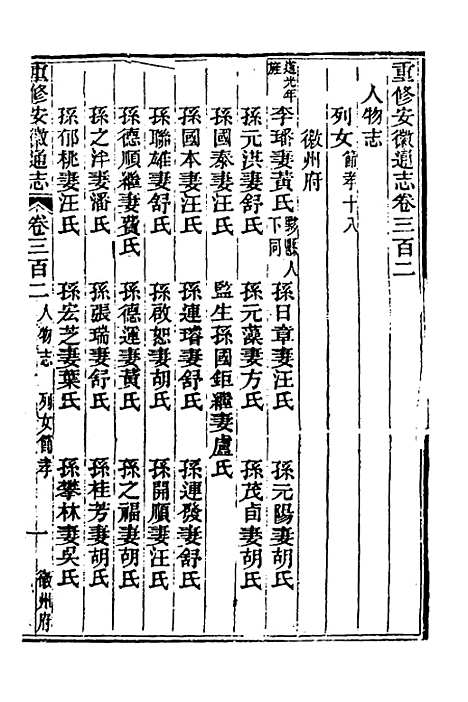 重修安徽通志卷三百二
人物志
列女節孝十八
徽州府
道光年旌 李璠妻黃氏黟縣人下同 孫日章妻汪氏 孫元陽妻胡氏
孫元洪妻黃氏 孫元藻妻方氏 孫茂貞妻胡氏
孫國泰妻汪氏 監生孫國鉅繼妻盧氏
孫國本妻汪氏 孫連璿妻舒氏 孫連發妻舒氏
孫聯雄妻舒氏 孫啟恕妻胡氏 孫開順妻汪氏
孫德順繼妻費氏 孫德運妻黃氏 孫之福妻胡氏
孫之泮妻潘氏 孫張瑞妻舒氏 孫桂芳妻胡氏
孫郁桃妻汪氏 孫宏芝妻葉氏 孫攀林妻吳氏
重修安徽通志 卷三百二 人物志 列女節孝 一 徽州府